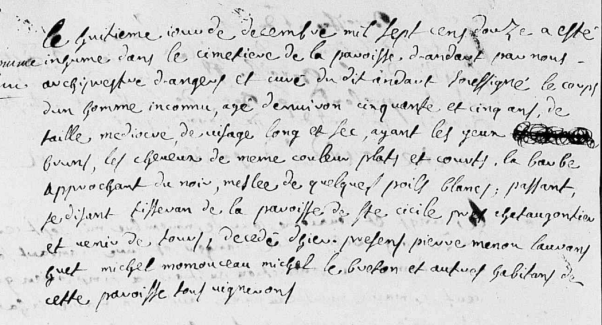 le huitieme jour de decembre mil sept cens douze a esté
inhumé dans le cimetiere de la paroisse d'andart par nous
archiprestre d'angers et curé du dit andart soussigné le corps
d'un homme inconnu, agé d'environ cinquante et cinq ans, de
taille mediocre, de visage long et sec, ayant les yeux
bruns, les cheveux de meme couleur plats et courts, la barbe
approchant du noir, meslee de quelques poils blancs; passant,
se disant tisseran de la paroisse de ste cicile pres chateaugontier
et venir de tours, decedé d'hier presens pierre menou laurans
huet michel momouceau michel le breton et autres habitans de
cette paroisse tous vignerons